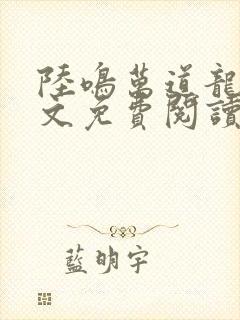 陸鳴萬道龍
文免費閱讀
藍明宇